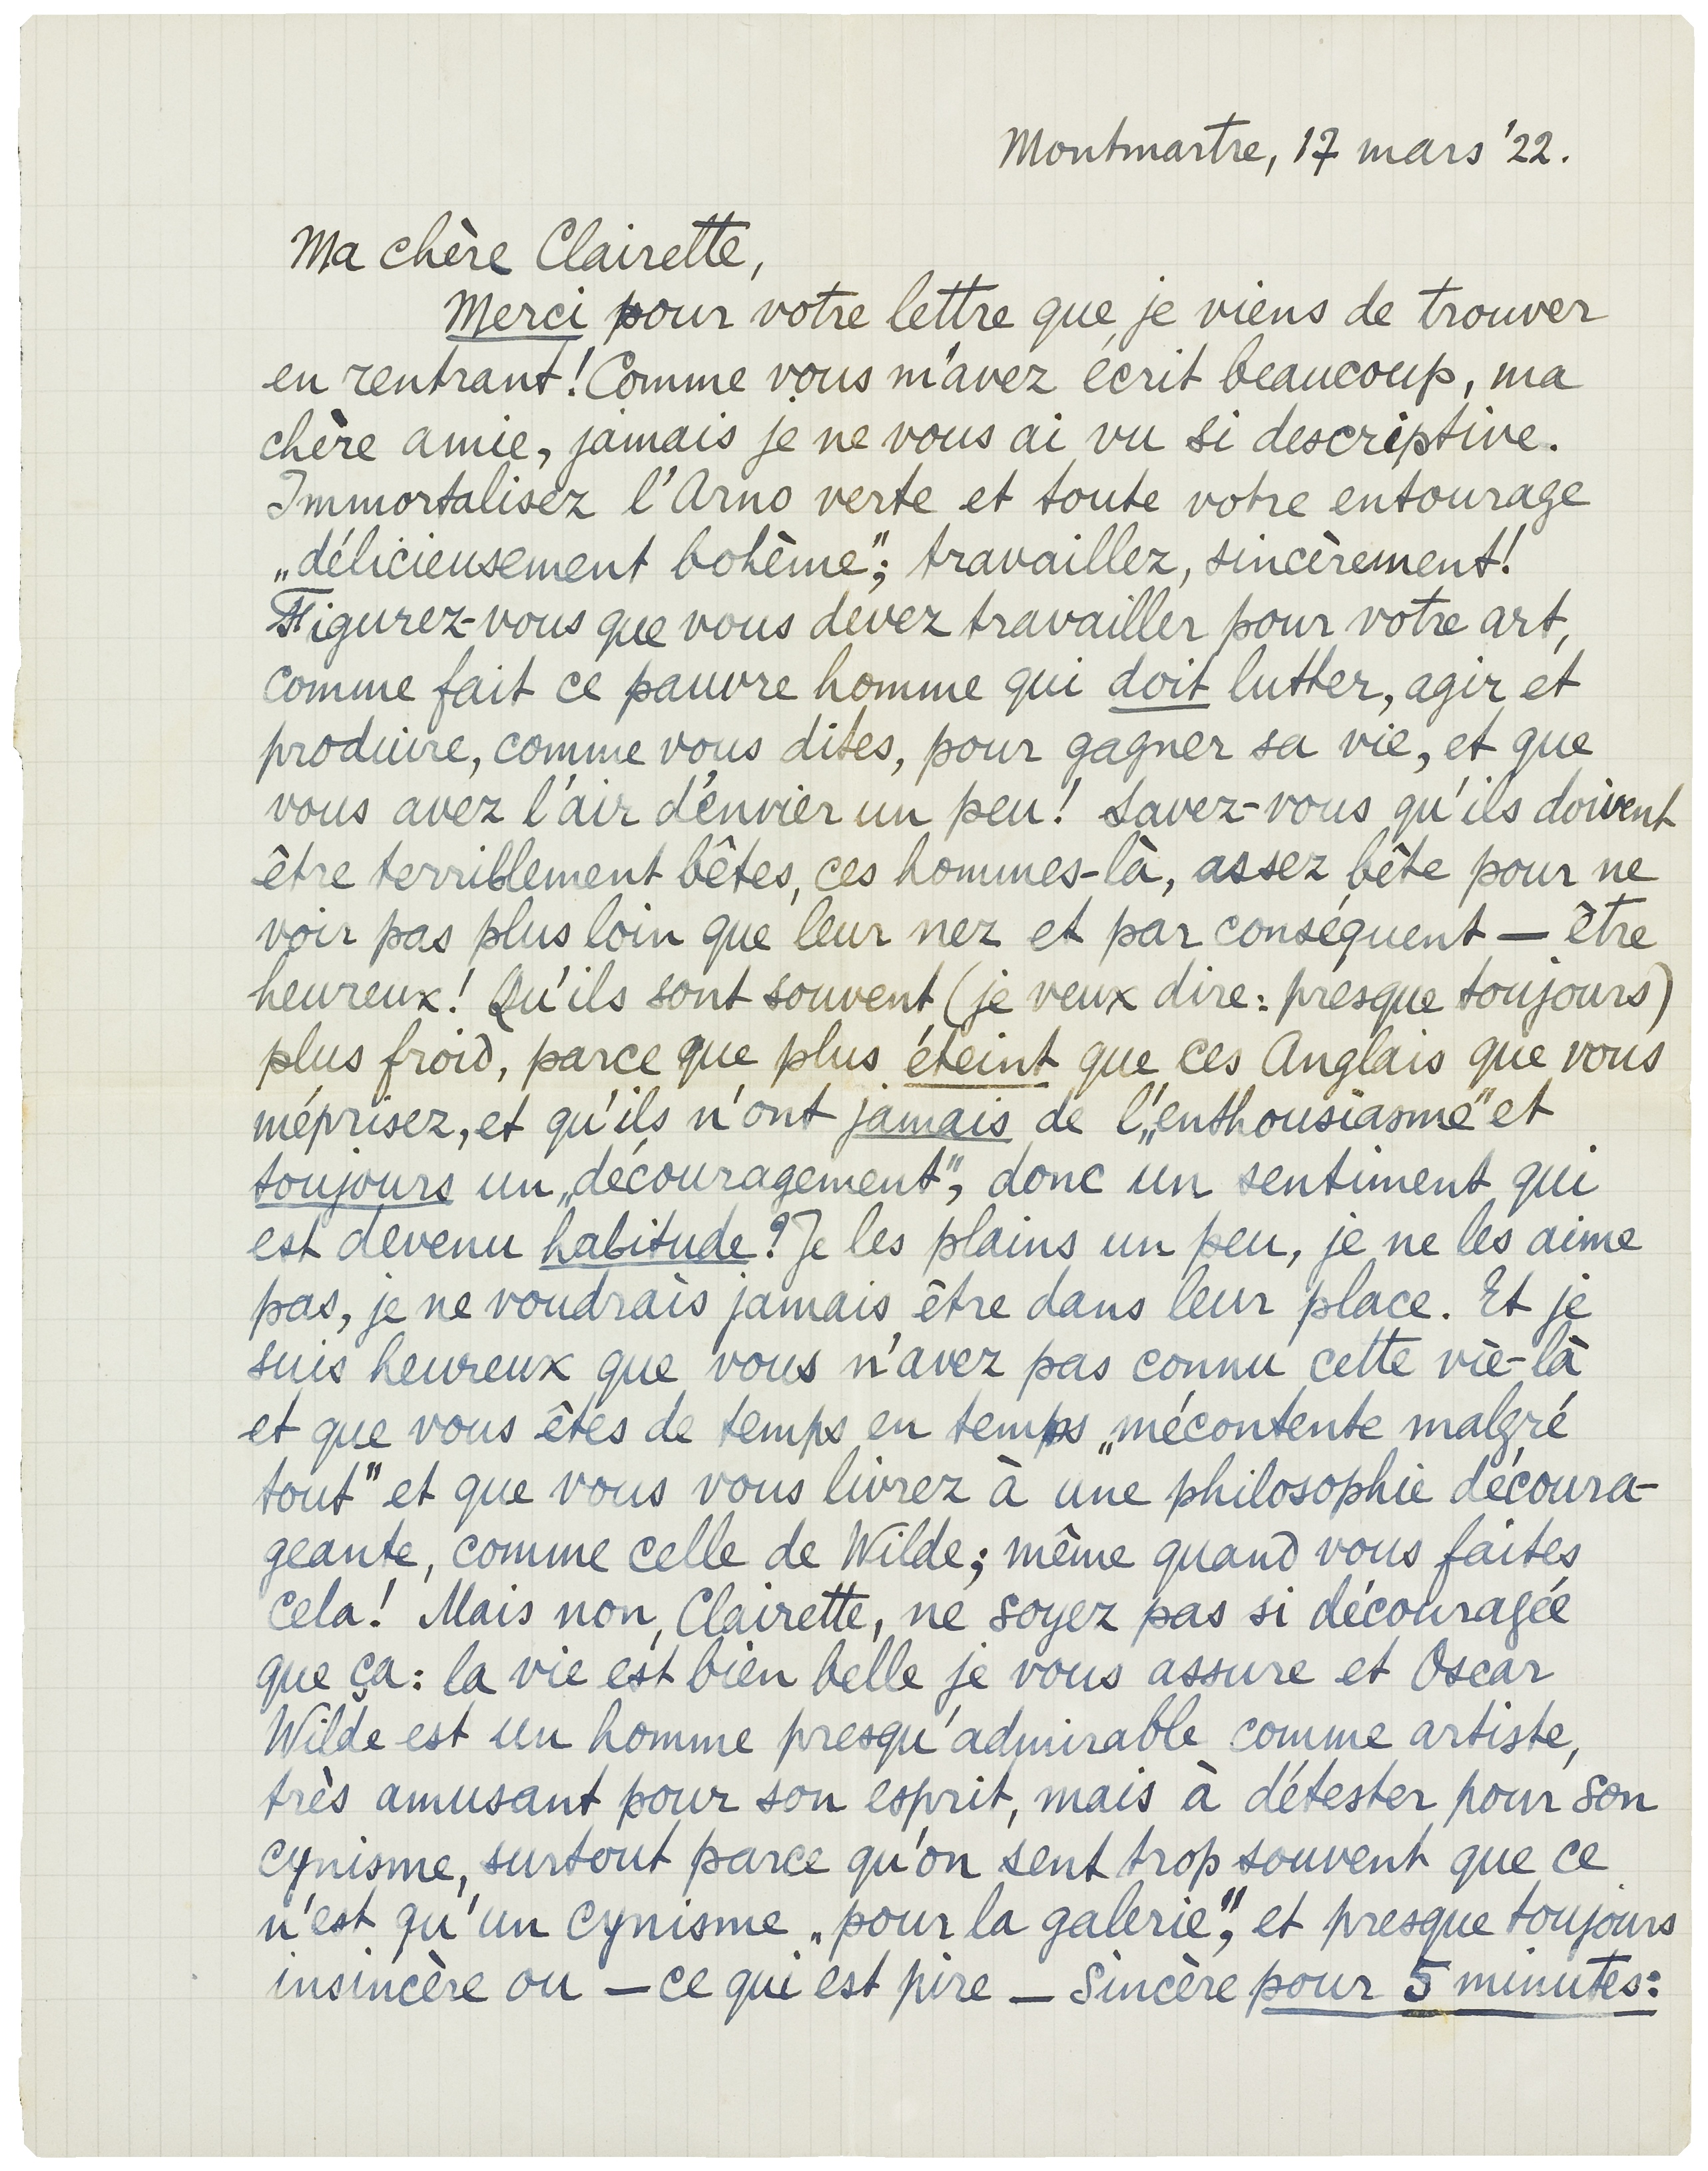 Montmartre, 17 mars '22.
Ma chère Clairette,
Merci pour votre lettre que je viens de trouver
en rentrant! Comme vous m'avez écrit beaucoup, ma
chère amie, jamais je ne vous ai vu si descriptive.
Immortalisez l'Arno verte et toute votre entourage
„délicieusement bohème”; travaillez, sincèrement!
Figurez-vous que vous devez travailler pour votre art,
comme fait ce pauvre homme qui doit lutter, agir et
produire, comme vous dites, pour gagner sa vie, et que
vous avez l'air d'envier un peu! Savez-vous qu'ils doivent
être terriblement bêtes, ces hommes-là, assez bête pour ne
voir pas plus loin que leur nez et par conséquent — être
heureux! Qu'ils sont souvent (je veux dire: presque toujours)
plus froid, parce que plus éteint que ces Anglais que vous
méprisez, et qu'ils n'ont jamais de l'„enthousiasme” et
toujours un „découragement”, donc un sentiment qui
est devenu habitude? Je les plains un peu, je ne les aime
pas, je ne voudrais jamais être dans leur place. Et je
suis heureux que vous n'avez pas connu cette vie-là
et que vous êtes de temps en temps „mécontente malgré
tout” et que vous vous livrez à une philosophie découra-
geante, comme celle de Wilde; même quand vous faites
cela! Mais non, Clairette, ne soyez pas si découragée
que ça: la vie est bien belle je vous assure et Oscar
Wilde est un homme presqu'admirable comme artiste,
très amusant pour son esprit, mais à détester pour son
cynisme, surtout parce qu'on sent trop souvent que ce
n'est qu'un cynisme „pour la galerie”, et presque toujours
insincère ou — ce qui est pire — sincère pour 5 minutes: